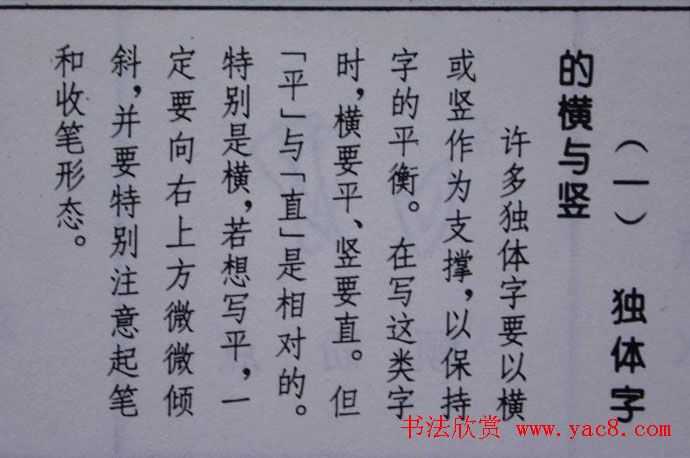 （一）　独体字
的横与竖
许多独体字要以横
或竖作为支撑，以保持
字的平衡。在写这类字
时，横要平、竖要直。但
「平」与「直」是相对的。
特别是横，若想写平，一
定要向右上方微微倾
斜，并要特别注意起笔
和收笔形态。
书法欣赏 www.yac8.com